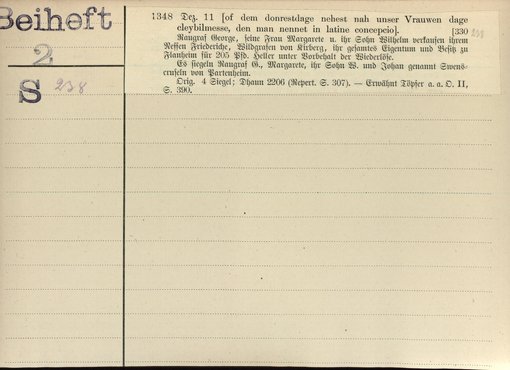 Beiheft
2
S 238
1348 Dez. 11 [of dem donrestdage nehest nah unser Vrauwen dage
cleybilmesse, den man nennet in latine concepcio]. [330
Raugraf George, seine Frau Margarete u. ihr Sohn Wilhelm verkaufen ihrem
Neffen Friederiche, Wildgrafen von Kirberg, ihr gesamtes Eigentum und Besitz zu
Flanheim für 205 Pfd. Heller unter Vorbehalt der Wiederlöse.
Es siegeln Raugraf G., Margarete, ihr Sohn W. und Johan genannt Swens-
erusen von Partenheim.
Orig. 4 Siegel; Dhaun 2206 (Repert. S. 307). — Erwähnt Töpfer a. a. O. II,
S. 390.